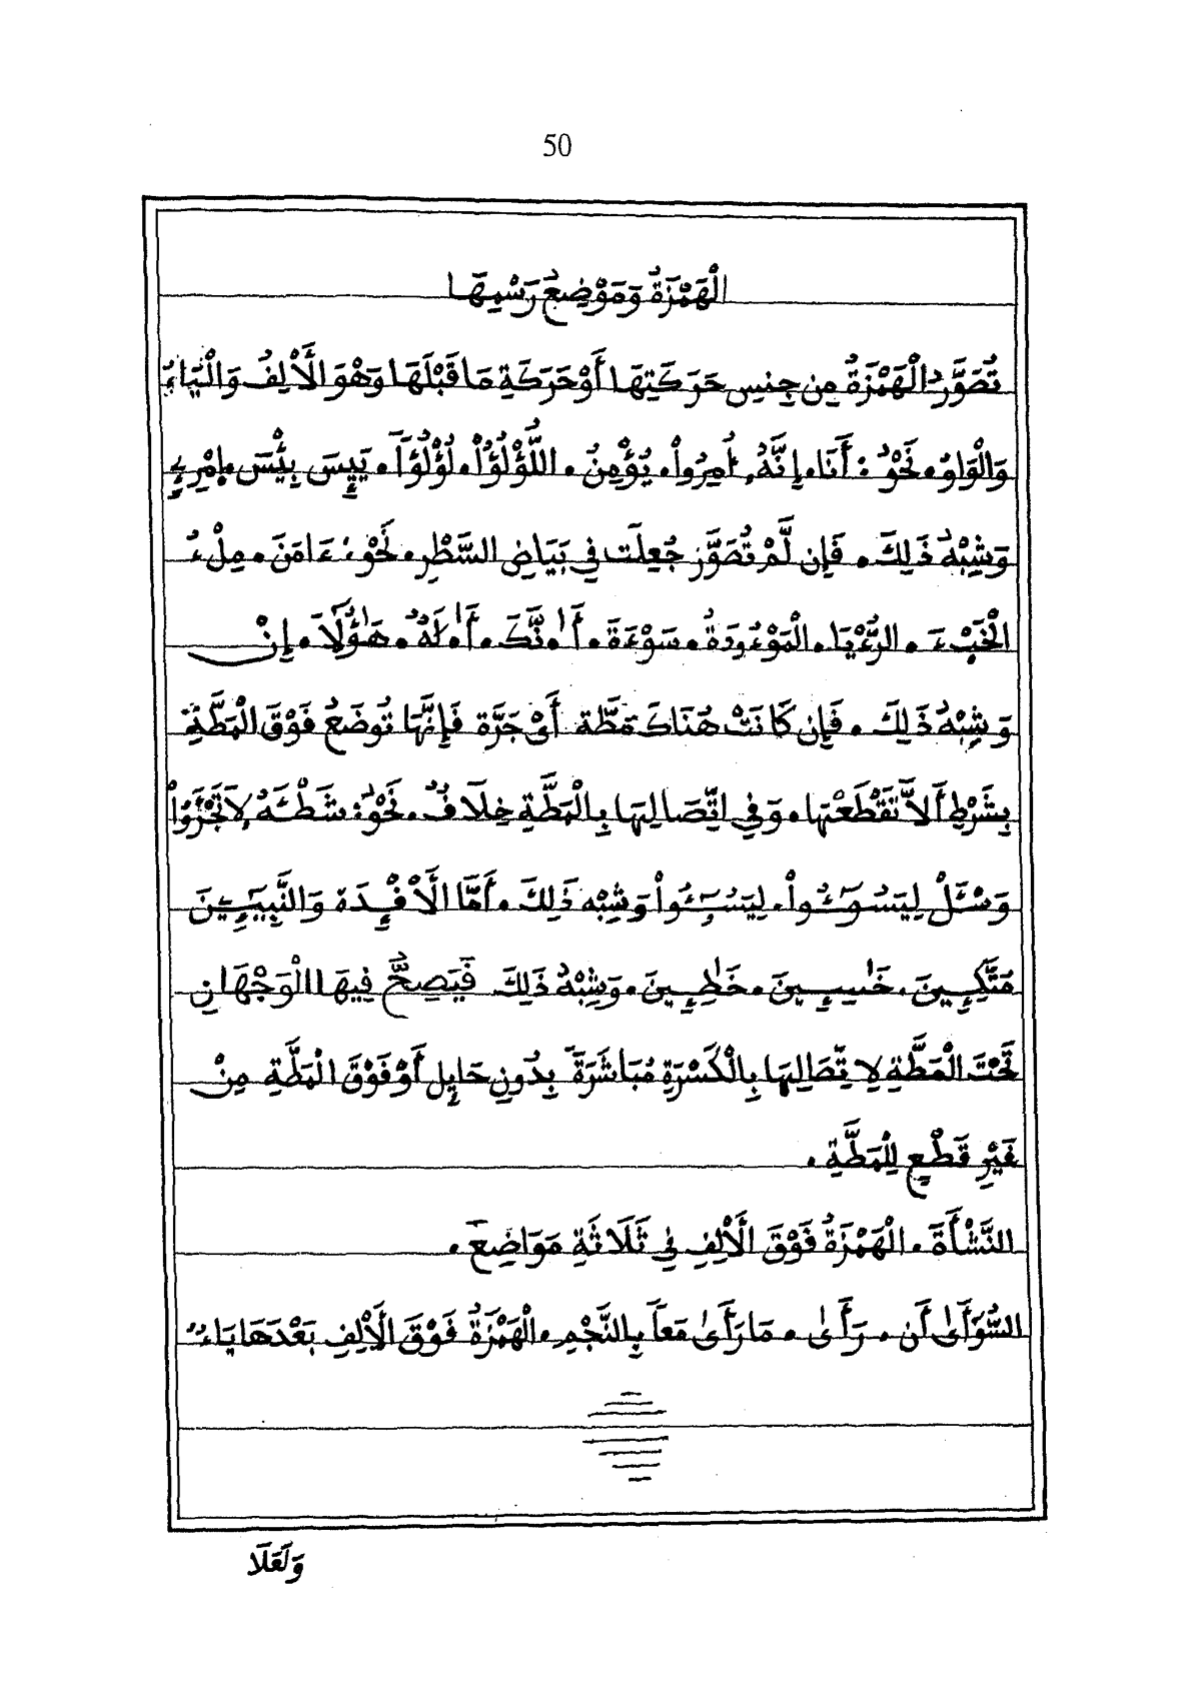 50
الْهَمْزَةُ وَمَوْضِعُ رَسْمِهَا
تُصَوَّرُ الْهَمْزَةُ مِن جِنسِ حَرَكَتِهَا أَوْ حَرَكَةِ مَا قَبْلَهَا وَهْوَ الْأَلِفُ وَالْيَاءُ
وَالْوَاوُ. نَحْوُ: أَنَا. إِنَّهُ. أُمِرُواْ. يُؤْمِنُ. اللُّؤْلُؤُاْ. لُؤْلُؤاً. يَيِٕسَ بِئْسَ. اِمْرِےٕ
وَشِبْهُ ذَلِكَ. فَإِن لَّمْ تُصَوَّرْ جُعِلَت فِي بَيَاضِ السَّطْرِ. نَحْوُ: ءَامَنَ. مِلْءُ
الْخَبْءَ. الرُّءْيَا. الْمَوْءُودَةُ. سَوْءَةَ. أَ.نَّكَ. أَ.لَهٌ. هَؤُلَا. إِنْ
وَشِبْهُ ذَلِكَ. فَإِن كَانَتْ هُنَاكَ مَطَّة أَىْ جَرَّة فَإِنَّهَا تُوضَعُ فَوْقَ الْمَطَّةِ
بِشَرْطِ أَلاَّ تَقْطَعْهَا. وَفِي اتِّصَالِهَا بِالْمَطَّةِ خِلَافٌ. نَحْوُ: شَطْـَٔهُ لاَ تَجْـَٔرُواْ
وَسْـَٔلْ لِيَسُـُٔواْ. لِيَسُـُٔواْ وَشِبْهِ ذَلِكَ. أَمَّا الَافْـِٕدَة وَالنَّبِيـِٕينَ
مُتَّكِـِٕينَ. خَاسِـِٕينَ. خَاطِـِٕينَ. وَشِبْهُ ذَلِكَ فَيَصِحُّ فِيهَا الْوَجْهَانِ
تَحْتَ الْمَطَّةِ لِاتِّصَالِهَا بِالْكَسْرَةِ مُبَاشَرَةً بِدُونِ حَايِٕل أَوْ فَوْقَ الْمَطَّةِ مِنْ
غَيْرِ قَطْعٍ لِلْمَطَّةِ.
النَّشْأَةَ. الْهَمْزَةُ فَوْقَ الْأَلِفِ فِي ثَلَاثَةِ مَوَاضِعَ.
السُّوَأَىٰ أَن. رَأَىٰ. مَا رَأَىٰ مَعاً بِالنَّجْمِ. الْهَمْزَةُ فَوْقَ الْأَلِفِ بَعْدَهَا يَاءٌ
وَلَعَلَا